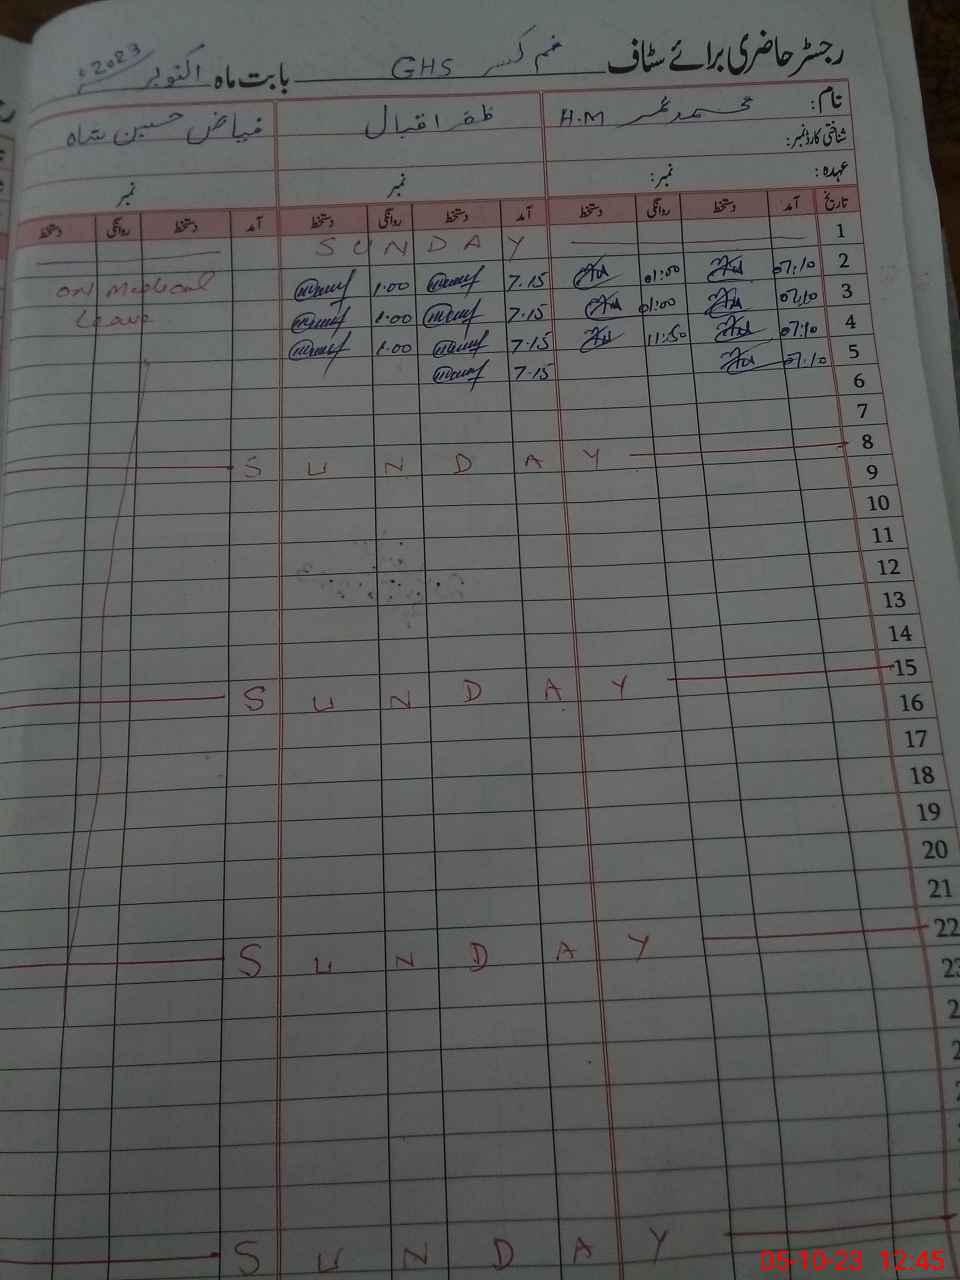 رجسٹر حاضری برائے سٹاف GHS بابت ماہ اکتوبر 2023ء
نام: محمد عمر H.M ظفر اقبال فیاض حسین شاہ
شناختی کارڈ نمبر:
عہدہ: نمبر: نمبر نمبر
تاریخ آمد دستخط روانگی دستخط آمد دستخط روانگی دستخط آمد دستخط روانگی دستخط
1 SUNDAY
2 07:10 01:00 7.15 1.00 on medical
3 07:10 01:00 7.15 1.00 Leave
4 07:10 11:50 7.15 1.00
5 07:10 7.15
6
7
8 SUNDAY
9
10
11
12
13
14
15 SUNDAY
16
17
18
19
20
21
22 SUNDAY
23
2
2
2
SUNDAY
05-10-23 12:45